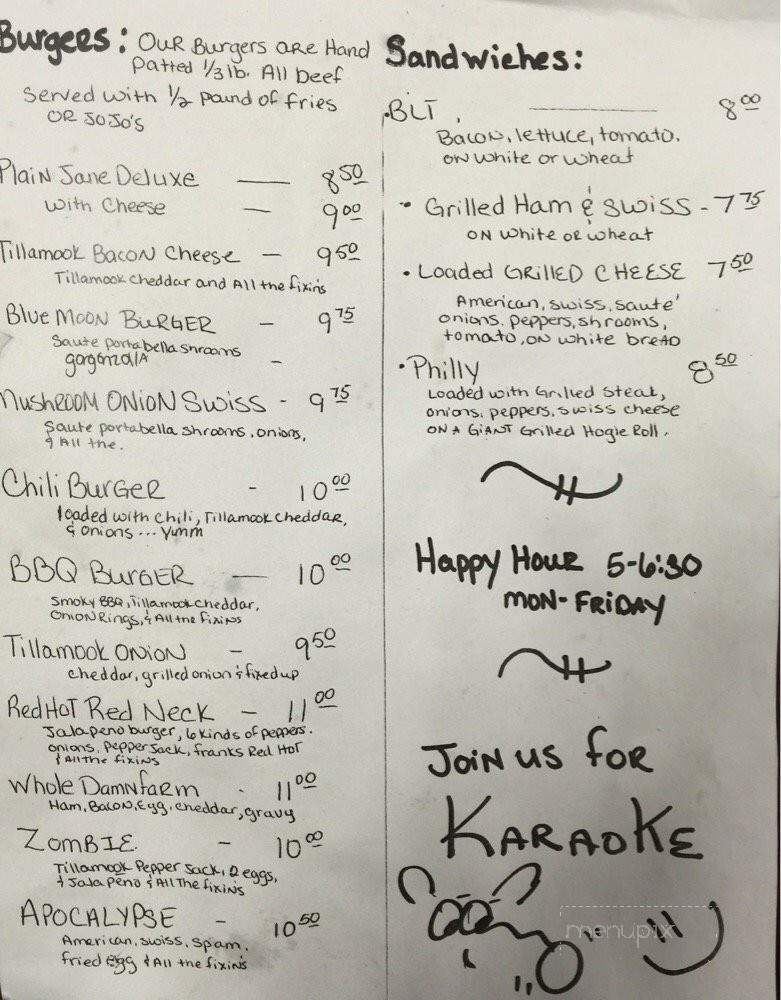 Burgers: Our Burgers are Hand
Patted 1/3 lb. All beef
Served with 1/2 pound of fries
OR JoJo's
Plain Jane Deluxe — 8.50
with Cheese — 9.00
Tillamook Bacon Cheese — 9.50
Tillamook cheddar and All the fixin's
Blue Moon BURGER — 9.75
Saute portabella shrooms
gorgonzola —
MUSHROOM ONION SWISS - 9.75
Saute portabella shrooms, onions,
& All the.
Chili BURGER - 10.00
loaded with chili, Tillamook cheddar,
& onions ... Yumm
BBQ BURGER — 10.00
Smoky BBQ, Tillamook cheddar,
Onion Rings, & All the fixins
Tillamook ONION — 9.50
cheddar, grilled onion & fixed up
Red Hot Red Neck — 11.00
Jalapeno burger, 6 kinds of peppers.
onions, pepper jack, franks Red Hot
& All the fixins
Whole Damn farm - 11.00
Ham, Bacon, Egg, cheddar, gravy
ZOMBIE - 10.00
Tillamook Pepper Jack, 2 eggs,
& Jalapeno & All The fixin's
APOCALYPSE - 10.50
American, swiss, spam,
fried egg & All the fixin's
Sandwiches:
• BLT, — 8.00
Bacon, lettuce, tomato.
ON white or wheat
• Grilled Ham & Swiss - 7.75
ON white or wheat
• Loaded GRILLED CHEESE 7.50
American, swiss, saute'
onions, peppers, shrooms,
tomato, ON white bread
• Philly 8.50
Loaded with Grilled Steak,
onions, peppers, swiss cheese
ON A GIANT Grilled Hogie Roll.
Happy HOUR 5-6:30
MON-FRIDAY
JOIN US FOR
KARAOKE
menupix